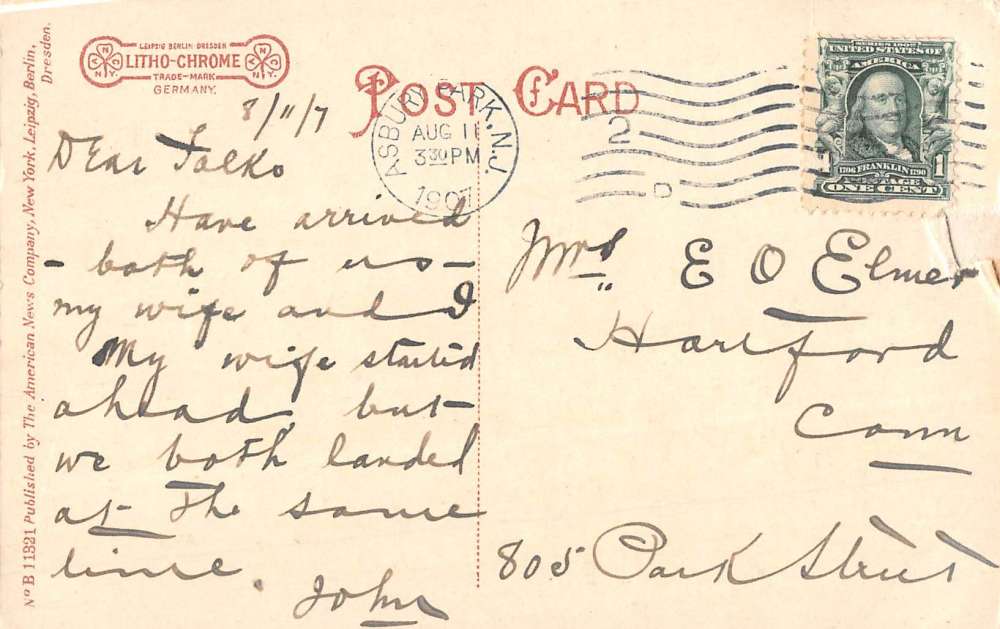 LEIPZIG BERLIN DRESDEN
LITHO-CHROME
TRADE-MARK
GERMANY.
A N C N.Y.
A N C N.Y.
POST CARD
ASBURY PARK, N.J.
AUG 11
3 30 PM
1907
2
D
SERIES 1902
UNITED STATES OF
AMERICA
1706 FRANKLIN 1790
POSTAGE
1 1
ONE CENT
8/11/7
Dear Folks
Have arrived
- both of us -
my wife and I
My wife started
ahead, but
we both landed
at the same
time.
John
Mrs E O Elmer
Hartford
Conn
805 Park Street
Nº B 11321 Published by The American News Company, New York, Leipzig, Berlin,
Dresden.